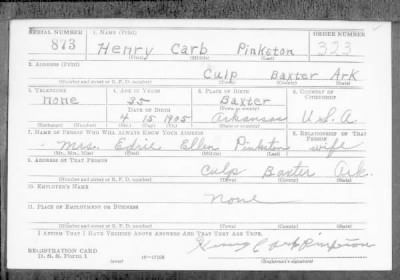 SERIAL NUMBER 1. NAME (Print) ORDER NUMBER
873 Henry Carb Pinkston 323
(First) (Middle) (Last)
2. ADDRESS (Print)
Culp Baxter Ark
(Number and street or R. F. D. number) (Town) (County) (State)
3. TELEPHONE 4. AGE IN YEARS 5. PLACE OF BIRTH 6. COUNTRY OF CITIZENSHIP
none 35 Baxter
DATE OF BIRTH (Town or county)
4 15 1905 Arkansas U.S.A.
(Exchange) (Number) (Mo.) (Day) (Yr.) (State or country)
7. NAME OF PERSON WHO WILL ALWAYS KNOW YOUR ADDRESS 8. RELATIONSHIP OF THAT PERSON
Mrs. Ellen Pinkston wife
(Mr., Mrs., Miss) (First) (Middle) (Last)
9. ADDRESS OF THAT PERSON
Culp Baxter Ark.
(Number and street or R. F. D. number) (Town) (County) (State)
10. EMPLOYER'S NAME
None
11. PLACE OF EMPLOYMENT OR BUSINESS
(Number and street or R. F. D. number) (Town) (County) (State)
I AFFIRM THAT I HAVE VERIFIED ABOVE ANSWERS AND THAT THEY ARE TRUE.
REGISTRATION CARD Henry Carb Pinkston
D. S. S. Form 1 (over) 16—17105 (Registrant's signature)